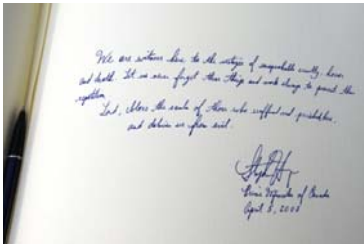 We are witness here to the vestiges of unspeakable cruelty, horror
and death. Let us never forget these things and work always to prevent their
repetition.
Lord, bless the souls of those who suffered and perished here,
and deliver us from evil.
Prime Minister of Canada
April 5, 2008